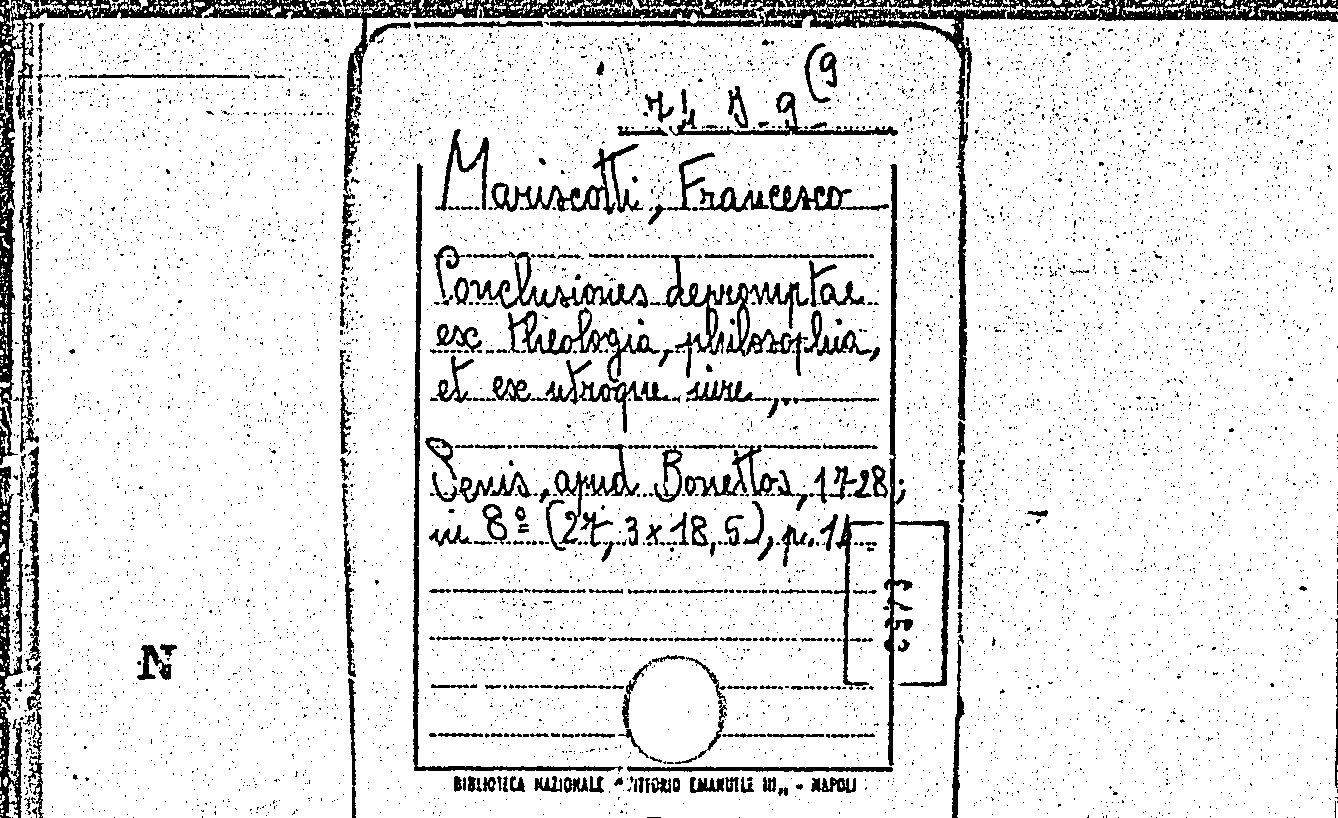 74 J 9 (9
Mariscotti, Francesco
Conclusiones depromptae
ex theologia, philosophia,
et ex utroque iure,..
Senis, apud Bonettos, 1728;
in 8º (27,3 x 18,5), p. 14
N
BIBLIOTECA NAZIONALE "VITTORIO EMANUELE III„ - NAPOLI